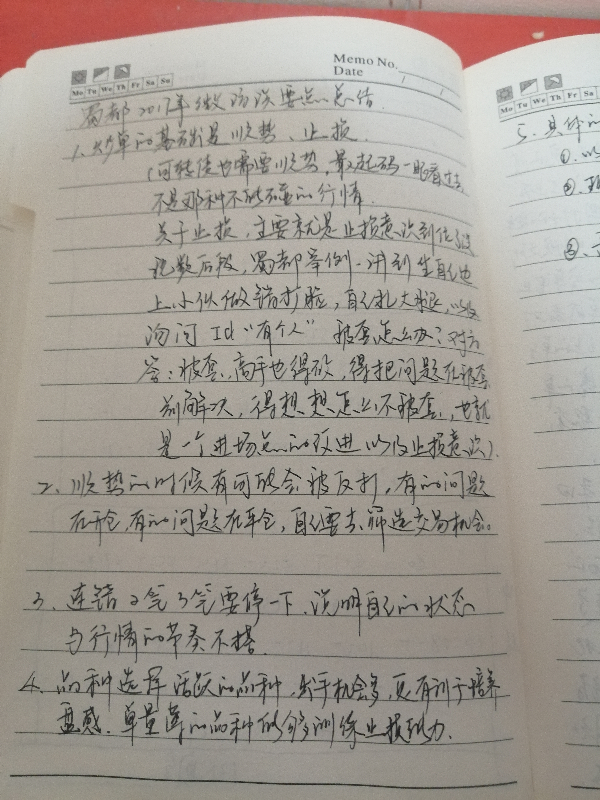 Memo No.
Date / /
Mo Tu We Th Fr Sa Su
蜀都2017年微访谈要点总结.
1、炒单的基础是顺势、止损.
(可转债也需要顺势,最起码一眼看过去
不是那种不能看的行情
关于止损,主要就是止损意识到位
蜀都举例.讲到生自己电
上小伙做错打脸,自己扎大腿,以及
询问 Id“有个人” 被套怎么办?对方
答:被套,高手也得砍,得把问题在被套
前解决,得想想怎么不被套,也就
是一个进场点的改进以及止损意识).
2、顺势的时候有可能会被反打,有的问题
在开仓,有的问题在平仓,自己要去筛选交易机会。
3、连错2笔3笔要停一下,说明自己的状态
与行情的节奏不搭.
4、品种选择活跃的品种,出手机会多,更有利于培养
盘感.单量薄的品种能够训练止损能力.
Mo Tu We Th Fr Sa
5、具体的
①、以
②、
③、